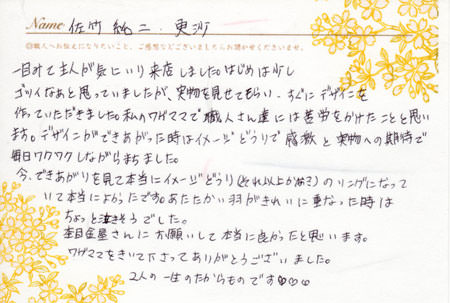 Name 佐竹 純二・恵沙
◎職人へお伝えになりたいこと、ご感想などございましたらお聞かせくださいませ。
一目みて主人が気にいり来店しました。はじめは少し
ゴツイなあと思っていましたが、実物を見せてもらい、すぐにデザインを
作っていただきました。私のワガママで職人さん達には苦労をかけたことと思い
ます。デザインができあがった時はイメージどうりで感激と実物への期待で
毎日ワクワクしながらまちました。
今、できあがりを見て本当にイメージどうり(それ以上かな)のリングになって
いて本当によかったです。あたたかい羽がきれいに重なった時は
ちょっと泣きそうでした。
杢目金屋さんにお願いして本当に良かったと思います。
ワガママをきいて下さってありがとうございました。
2人の一生のたからものです♡♡♡